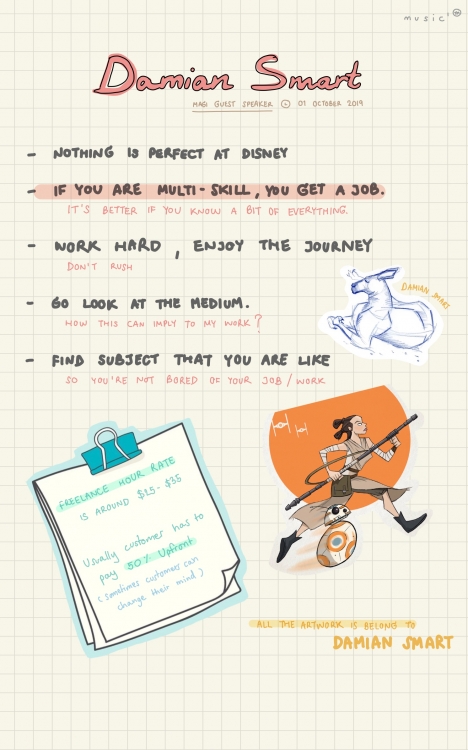 music
Damian Smart
MAGI GUEST SPEAKER 01 OCTOBER 2019
- NOTHING IS PERFECT AT DISNEY
- IF YOU ARE MULTI-SKILL, YOU GET A JOB.
IT'S BETTER IF YOU KNOW A BIT OF EVERYTHING.
- WORK HARD, ENJOY THE JOURNEY
DON'T RUSH
- GO LOOK AT THE MEDIUM.
HOW THIS CAN IMPLY TO MY WORK?
DAMIAN SMART
- FIND SUBJECT THAT YOU ARE LIKE
SO YOU'RE NOT BORED OF YOUR JOB/WORK
FREELANCE HOUR RATE
IS AROUND $15-$35
Usually customer has to
pay 50% Upfront
(sometimes customers can
change their mind)
ALL THE ARTWORK IS BELONG TO
DAMIAN SMART